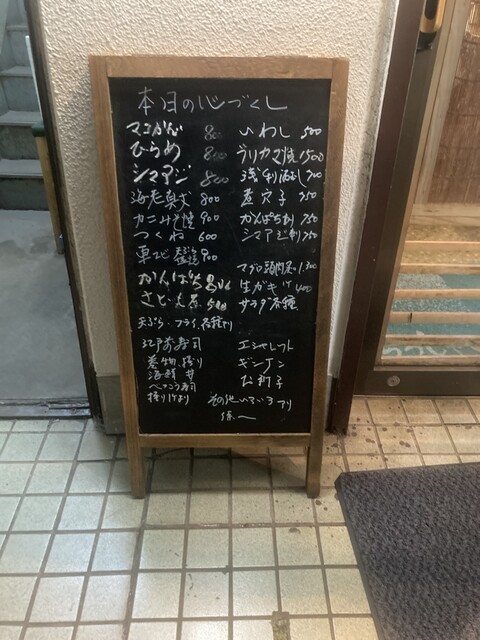 本日の心づくし
マコがれい 800
ひらめ 800
シマアジ 800
海老真丈 800
カニみそ焼 900
つくね 600
天ぷら 塩焼 900
かんぱち
さといも 500
天ぷら・フライ 各種より
江戸前寿司
巻物 握り
海鮮丼
べっこう寿司
握り1ケより
いわし 500
ブリカマ焼 1500
浅利酒むし 700
煮穴子 750
かんぱち刺 750
シマアジ刺 750
マグロ 1,300
生ガキ 1ケ 400
サラダ各種
エシャレット
ギンナン
お新子
その他いろいろアリ